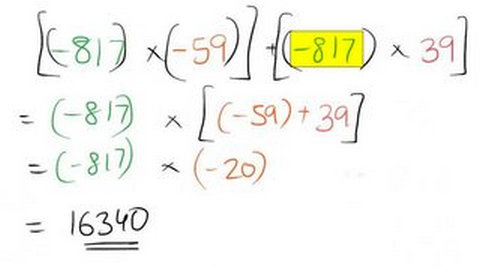 [(-817) × (-59)] + [(-817) × 39]
= (-817) × [(-59) + 39]
= (-817) × (-20)
= 16340